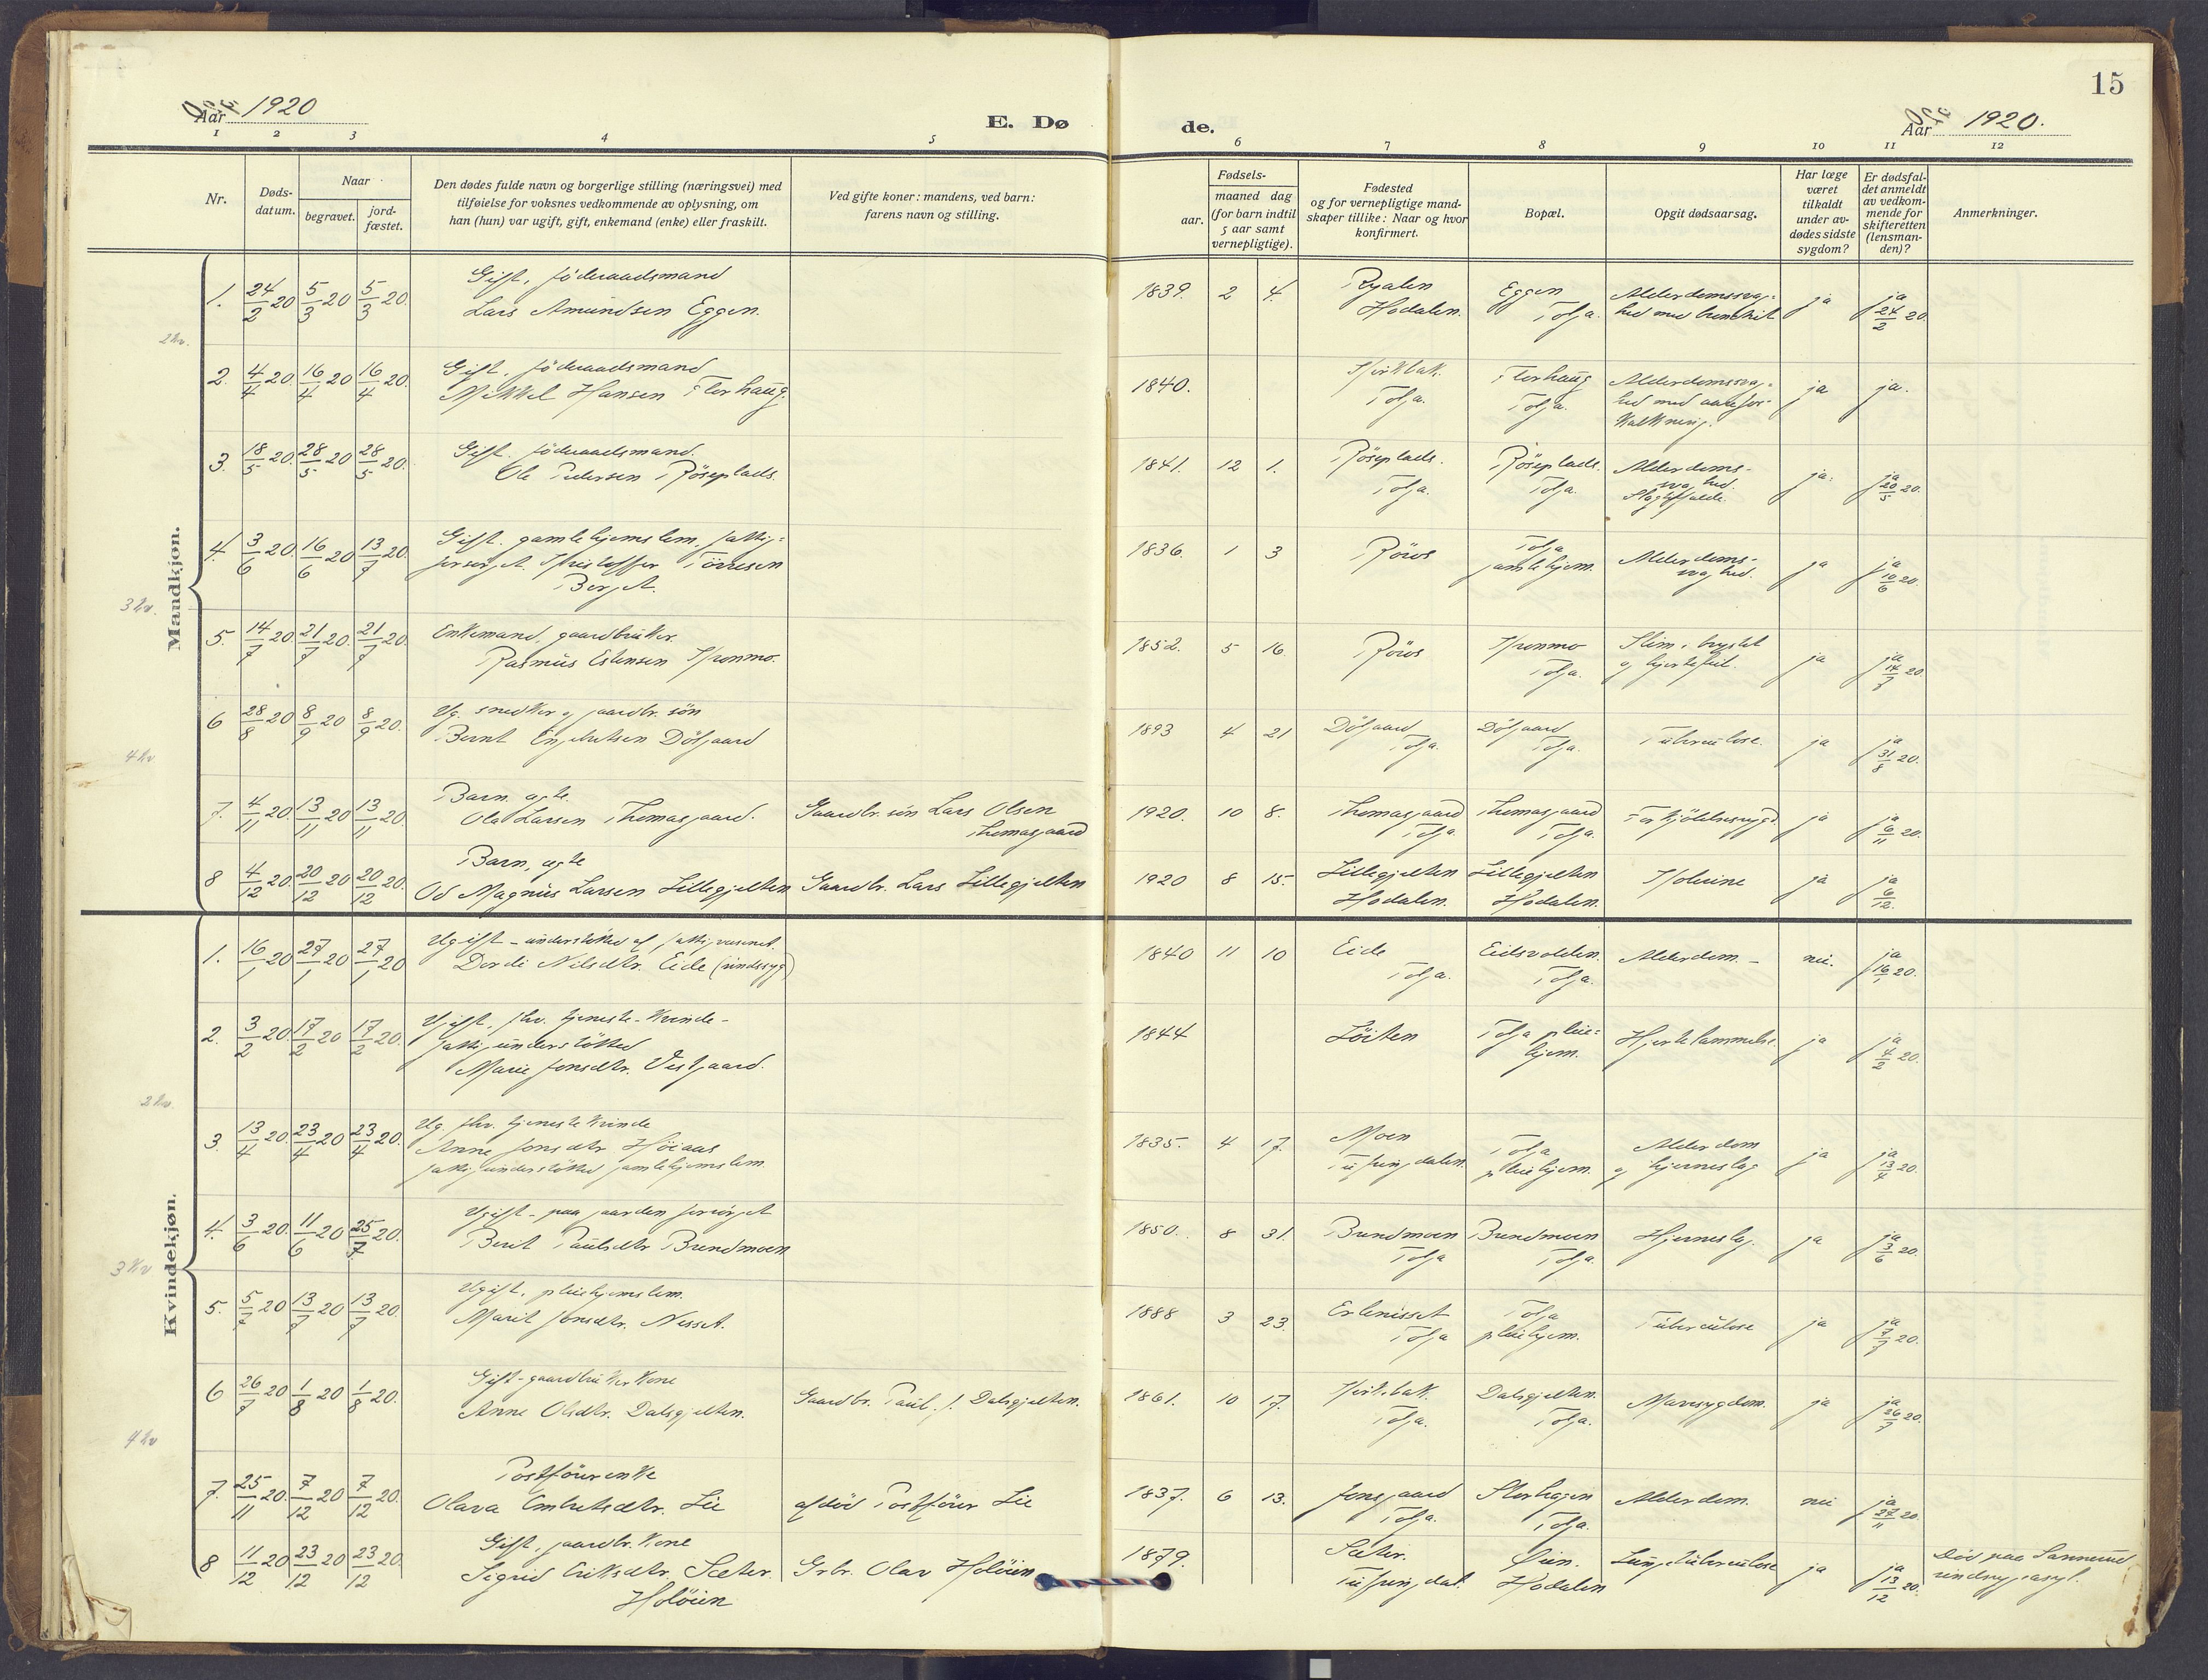 15
Aar 1920
E. Dø
de.
Aar 1920.
1 2 3 4 5 6 7 8 9 10 11 12
Nr.
Døds-
datum.
Naar
begravet.
jord-
fæstet.
Den dødes fulde navn og borgerlige stilling (næringsvei) med
tilføielse for voksnes vedkommende av oplysning, om
han (hun) var ugift, gift, enkemand (enke) eller fraskilt.
Ved gifte koner: mandens, ved barn:
farens navn og stilling.
Fødsels-
aar.
maaned dag
(for barn indtil
5 aar samt
vernepligtige).
Fødested
og for vernepligtige mand-
skaper tillike: Naar og hvor
konfirmert.
Bopæl.
Opgit dødsaarsag.
Har læge
været
tilkaldt
under av-
dødes sidste
sygdom?
Er dødsfal-
det anmeldt
av vedkom-
mende for
skifteretten
(lensman-
den)?
Anmerkninger.
Mandkjøn.
1. 24/2 20 5/3 20 5/3 20. Gift, föderaadsmand
Lars Amundsen Eggen.
1839. 2 4. Ryalen Hodalen. Eggen Tolga. Alderdomssvag-
hed med bronchit ja ja 24/2 20.
2 kv.
2. 4/4 20. 16/4 20 16/4 20. Gift. föderaadsmand
Mikkel Hansen Florhaug.
1840. Tolga. Florhaug Tolga. Alderdomssvag-
hed med aarefor-
kalkning. ja ja.
3. 18/5 20. 28/5 20 28/5 20. Gift. föderaadsmand.
Ole Pedersen Röseplads.
1841. 12 1. Röseplads. Tolga. Röseplads. Tolga. Alderdoms-
svaghed.
Slagtilfælde. ja. ja 20/5 20.
4. 3/6 20. 16/6 20 13/7 20. Gift. gamlehjemslem, fattig-
forsörget. Kristoffer Törresen
Berget.
1836. 1 3 Röros Tolga gamlehjem. Alderdoms-
svaghed. ja ja 10/6 20.
3 kv.
5. 14/7 20. 21/7 20. 21/7 20. Enkemand, gaardbruker
Rasmus Estensen Kronmo.
1852. 5 16. Röros Kronmo Tolga. Slim i brystet
og hjertefeil. ja ja 14/7 20.
6 28/8 20 8/9 20 8/9 20. Ug. snedker og gaardbr. sön
Bernt Engebretsen Dölgaard
1893 4 21 Dölgaard Tolga. Dölgaard Tolga. Tuberculose. ja ja 31/8 20.
4 kv
7. 4/11 20. 13/11 20 13/11 20. Barn. ægte.
Ola Larsen Thomasgaard. Gaardbr. sön Lars Olsen
Thomasgaard
1920. 10 8. Thomasgaard Tolga. Thomasgaard Tolga. Forkjölelsessygd. ja ja 6/11 20.
8 4/12 20. 20/12 20 20/12 20. Barn, ægte
Od Magnus Larsen Lillegjelten Gaardbr. Lars Lillegjelten
1920 8 15. Lillegjelten Hodalen. Lillegjelten Hodalen. Kolerine ja ja 6/12.
Kvindekjøn.
1. 16/1 20 27/1 20 27/1 20 Ugift - understöttet af fattigvæsenet.
Dordi Nilsdtr. Eide (sindssyg)
1840 11 10 Eide Tolga. Eidsvolden. Tolga. Alderdom. - nei. ja 16/1 20.
2. 3/2 20. 17/2 20 17/2 20. Ugift. fhv. tjeneste-kvinde-
fattigunderstöttet
Marie Jonsdtr. Vestgaard.
1844 Löiten Tolga pleie-
hjem. Hjertelammelse. ja ja 4/2 20.
2 kv.
3. 13/4 20. 23/4 20 23/4 20. Ug. fhv. tjenestekvinde
Anne Jonsdtr Höiaas
fattigunderstöttet gamlehjemslem.
1835. 4 17. Moen Tufsingdalen. Tolga pleiehjem. Alderdom
og hjerneslag ja ja 13/4 20.
4. 3/6 20. 11/6 20 25/7 20. Ugift - paa gaarden forsörget
Berit Paulsdtr Brendmoen
1850. 8 31. Brendmoen Tolga Brendmoen Tolga. Hjerneslag. ja ja 3/6 20.
3 kv
5. 5/7 20 13/7 20 13/7 20. Ugift. pleiehjemslem.
Marit Jonsdtr. Nesset.
1888 3 23. Erlenisset Tolga Tolga pleiehjem. Tuberculose ja ja 7/7 20.
6 26/7 20 1/8 20 1/8 20. Gift - gaardbrukerkone
Anne Olsdtr. Dalsgjelten. Gaardbr. Paul J. Dalsgjelten.
1861. 10 17. Tolga. Dalsgjelten. Tolga. Mavesygdom. ja ja 26/7 20.
4 kv
7. 25/11 20. 7/12 20 7/12 20. Postförerenke
Olava Embretsdtr. Lie afdöd Postförer Lie
1837. 6 13. Jonsgaard Tolga. Storhagen Tolga. Alderdom. nei ja 27/11 20.
8 11/12 20 23/12 20 23/12 20. Gift, gaardbr. kone
Sigrid Eriksdtr. Sæter. Grbr. Olav Holöien
Holöien
1879. Sæter. Tufsingdal. Öien. Hodalen Lungetuberculose ja ja 13/12 20. Död paa Sanmund
sindssygeasyl.